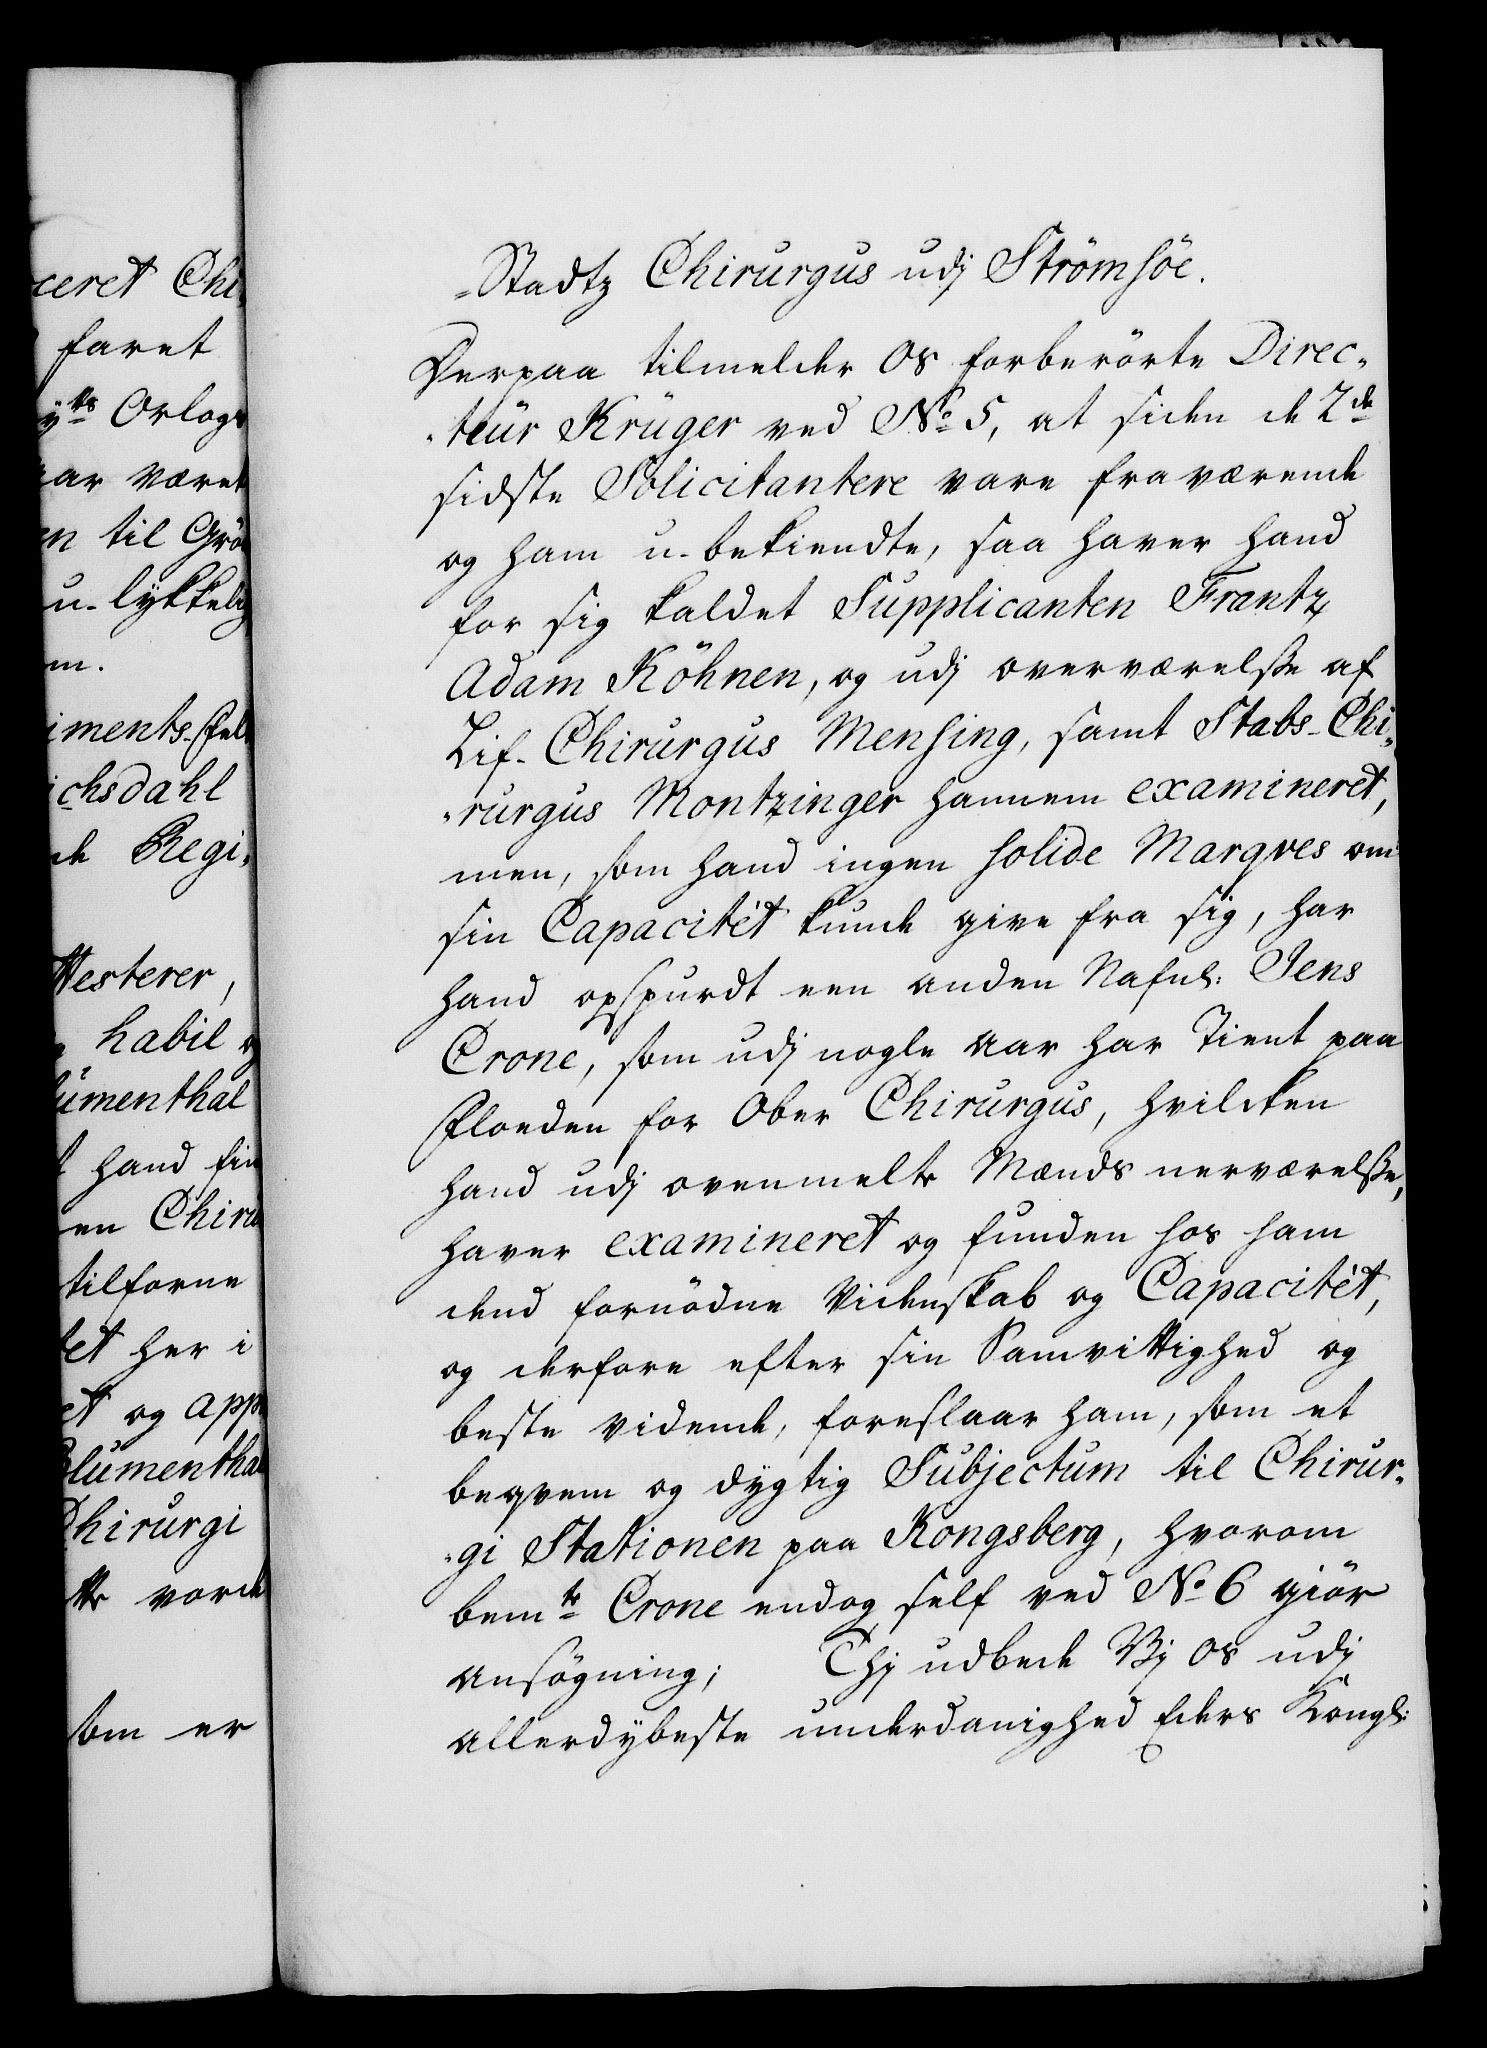 ceret Chi-
faret
Orlogs
ar været
n til Grö
u-lykkelig
m.
iments-Fel
ichsdahl
de Regi-
ttesterer,
habil og
lümenthal
hand fin
en Chiru
tilforne
let her i
et og app
Blumenthal
Chirurgi
vorde
som er
-Stadtz Chirurgus udj Strömsöe.
Derpaa tilmelder os forberörte Direc-
-teür Krüger ved No 5, at siden de 2de
sidste Solicitantere vare fraværende
og ham u-bekiendte, saa haver hand
for sig kaldet Supplicanten Frantz
Adam Köhnen, og udj overværelsse af
Lif-Chirurgus Mensing, samt Stabs-Chi-
-rurgus Montzinger hannem examineret,
men, som hand ingen solide Marqves om
sin Capacitét kunde give fra sig, har
hand opspurdt een anden Nafnl: Jens
Crone, som udj nogle Aar har Tient paa
Floeden for Ober Chirurgus, hvilcken
hand udj ovenmelte Mænds nerværelsse,
haver examineret og funden hos ham
dend fornödne Videnskab og Capacitét,
og derfore efter sin Samvittighed og
beste vidende, foreslaar ham, som et
beqvem og dygtig Subjectum til Chirur-
-gi Stationen paa Kongsberg, hvorom
bemte Crone endog self ved No 6 giör
ansögning; Thj udbede Vj os udj
allerdybeste underdanighed Eders Kongl: